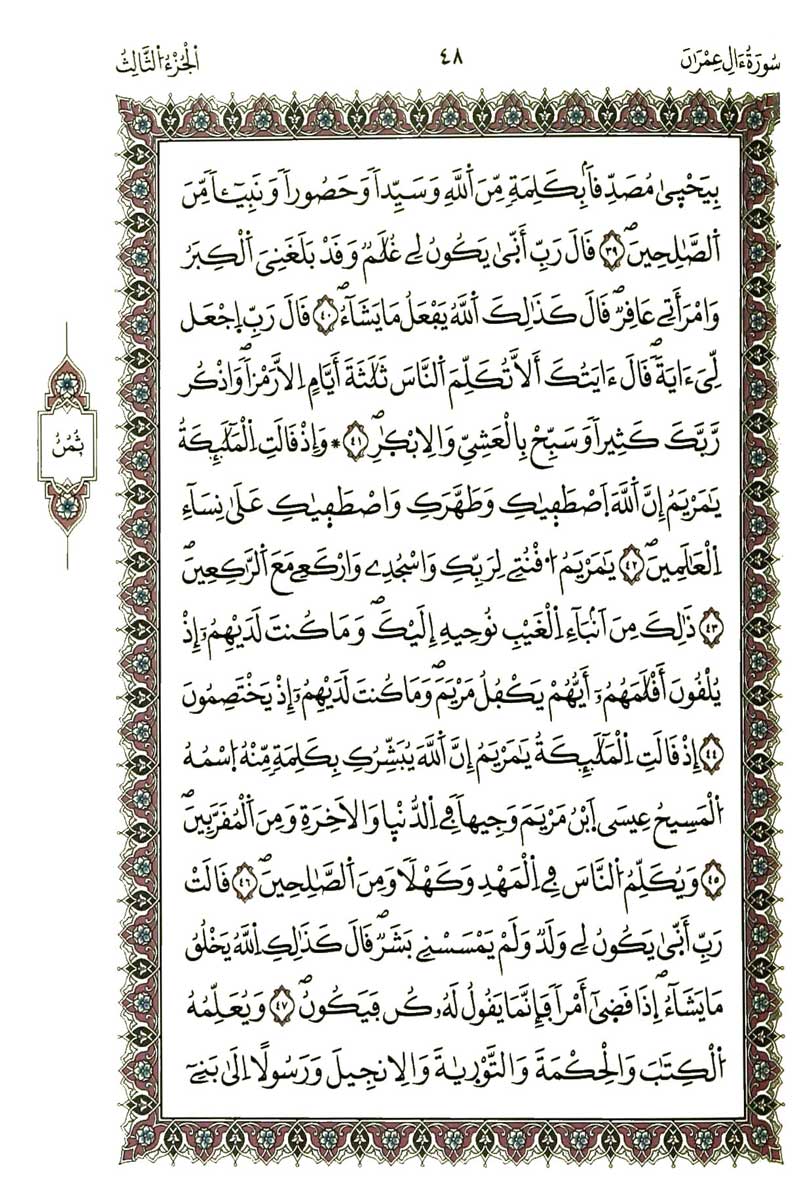 سُورَةُ ءَالِ عِمْرَانَ
٤٨
اَلْجُزْءُ الثَّالِثُ
بِيَحْيىٰ مُصَدِّقاَۢ بِكَلِمَةٖ مِّنَ اَ۬للَّهِ وَسَيِّداٗ وَحَصُوراٗ وَنَبِيٓـٔاٗ مِّنَ
اَ۬لصَّٰلِحِينَۖ ٣٩ قَالَ رَبِّ أَنّ۪يٰ يَكُونُ لِے غُلَٰمٞ وَقَدْ بَلَغَنِيَ اَ۬لْكِبَرُ
وَامْرَأَتِے عَاقِرٞۖ قَالَ كَذَٰلِكَ اَ۬للَّهُ يَفْعَلُ مَا يَشَآءُۖ ٤٠ قَالَ رَبِّ اِ۪جْعَل
لِّيَ ءَايَةٗۖ قَالَ ءَايَتُكَ أَلَّا تُكَلِّمَ اَ۬لنَّاسَ ثَلَٰثَةَ أَيَّامٍ اِلَّا رَمْزاٗۖ وَاذْكُر
رَّبَّكَ كَثِيراٗ وَسَبِّحْ بِالْعَشِيِّ وَالِابْكٰ۪رِۖ ٤١ * وَإِذْ قَالَتِ اِ۬لْمَلَٰٓئِكَةُ
يَٰمَرْيَمُ إِنَّ اَ۬للَّهَ اَ۪صْطَف۪يٰكِ وَطَهَّرَكِ وَاصْطَف۪يٰكِ عَلَيٰ نِسَآءِ
اِ۬لْعَٰلَمِينَۖ ٤٢ يَٰمَرْيَمُ اُ۟قْنُتِے لِرَبِّكِ وَاسْجُدِے وَارْكَعِے مَعَ اَ۬لرَّٰكِعِينَۖ
٤٣ ذَٰلِكَ مِنَ اَنۢبَآءِ اِ۬لْغَيْبِ نُوحِيهِ إِلَيْكَۖ وَمَا كُنتَ لَدَيْهِمُۥٓ إِذْ
يُلْقُونَ أَقْلَٰمَهُمُۥٓ أَيُّهُمْ يَكْفُلُ مَرْيَمَۖ وَمَا كُنتَ لَدَيْهِمُۥٓ إِذْ يَخْتَصِمُونَ
٤٤ إِذْ قَالَتِ اِ۬لْمَلَٰٓئِكَةُ يَٰمَرْيَمُ إِنَّ اَ۬للَّهَ يُبَشِّرُكِ بِكَلِمَةٖ مِّنْهُ اُ۪سْمُهُ
اُ۬لْمَسِيحُ عِيسَى اَ۪بْنُ مَرْيَمَ وَجِيهاٗ فِے اِ۬لدُّنْي۪ا وَالَاخِرَةِ وَمِنَ اَ۬لْمُقَرَّبِينَۖ
٤٥ وَيُكَلِّمُ اُ۬لنَّاسَ فِے اِ۬لْمَهْدِ وَكَهْلاٗ وَمِنَ اَ۬لصَّٰلِحِينَۖ ٤٦ قَالَتْ
رَبِّ أَنّ۪يٰ يَكُونُ لِے وَلَدٞ وَلَمْ يَمْسَسْنِے بَشَرٞۖ قَالَ كَذَٰلِكِ اِ۬للَّهُ يَخْلُقُ
مَا يَشَآءُۖ اِ۪ذَا قَض۪يٰٓ أَمْراٗ فَإِنَّمَا يَقُولُ لَهُۥ كُن فَيَكُونُۖ ٤٧ وَيُعَلِّمُهُ
اُ۬لْكِتَٰبَ وَالْحِكْمَةَ وَالتَّوْر۪يٰةَ وَالِانجِيلَ وَرَسُولاً اِلَيٰ بَنِےٓ
ثُمُنُ